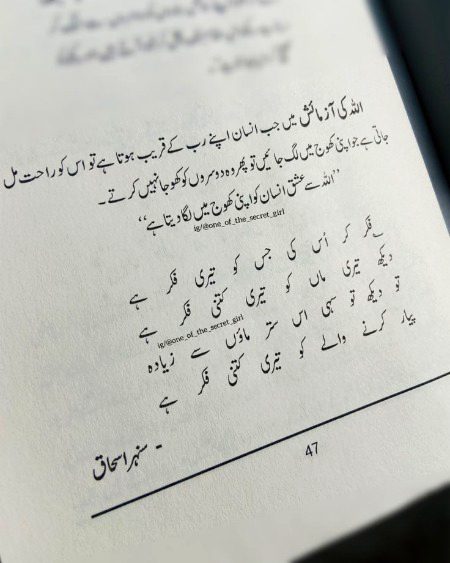 اللہ کی آزمائش میں جب انسان اپنے رب کے قریب ہوتا ہے تو اس کو راحت مل
جاتی ہے جو اپنی کھوج میں لگ جائیں تو پھر وہ دوسروں کو کھوجا نہیں کرتے۔
"اللہ سے عشق انسان کو اپنی کھوج میں لگا دیتا ہے"
ig/@one_of_the_secret_girl
فکر کر اُس کی جس کو تیری فکر ہے
دیکھ تیری ماں کو تیری کتنی فکر ہے
تو دیکھ تو سہی اس ستر ماؤں سے زیادہ
ig/@one_of_the_secret_girl
پیار کرنے والے کو تیری کتنی فکر ہے
- سنہرا اسحاق
47